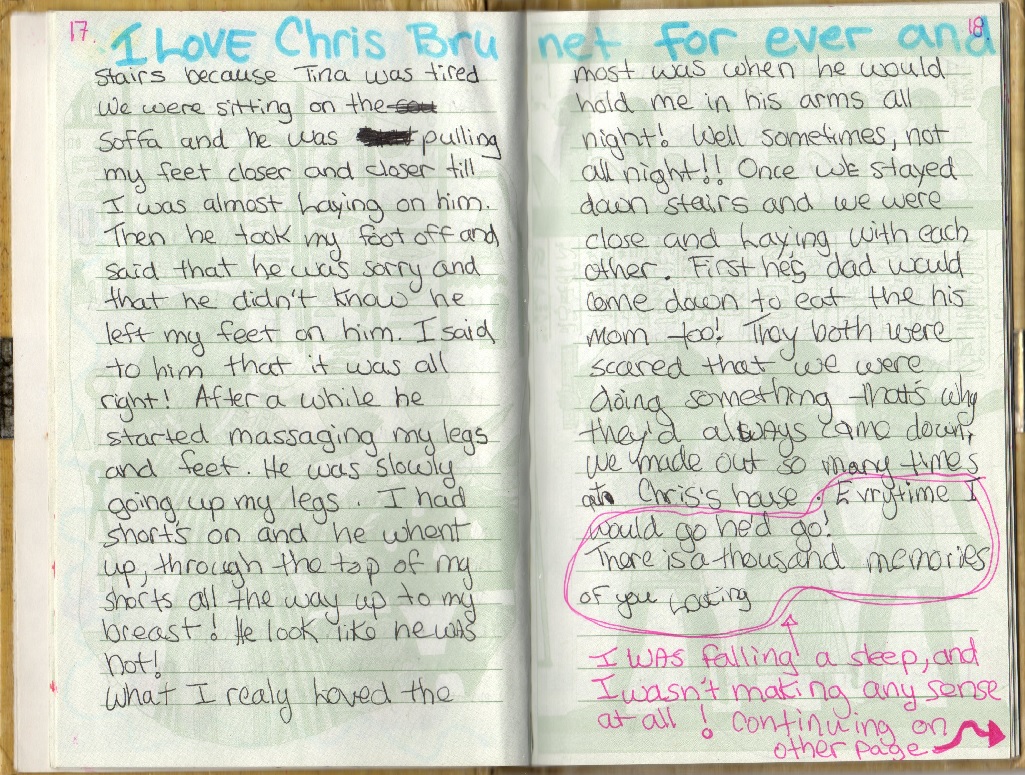 17
18
I LOVE Chris Bru net for ever and
stairs because Tina was tired
we were sitting on the
soffa and he was pulling
my feet closer and closer till
I was almost Laying on him.
Then he took my foot off and
said that he was sorry and
that he didn't know he
left my feet on him. I said
to him that it was all
right! After a while he
started massaging my legs
and feet. He was slowly
going up my legs. I had
shorts on and he whent
up, through the top of my
shorts all the way up to my
breast! He look like he was
hot!
what I realy Loved the
most was when he would
hold me in his arms all
night! Well sometimes, not
all night!! Once we stayed
down stairs and we were
close and Laying with each
other. First he's dad would
come down to eat the his
mom too! They both were
scared that we were
doing something that's why
they'd always came down,
we made out so many times
at Chris's house. Evrytime I
would go he'd go!
There is a thousand memories
of you
I was falling a sleep, and
I wasn't making any sense
at all! Continuing on
other page